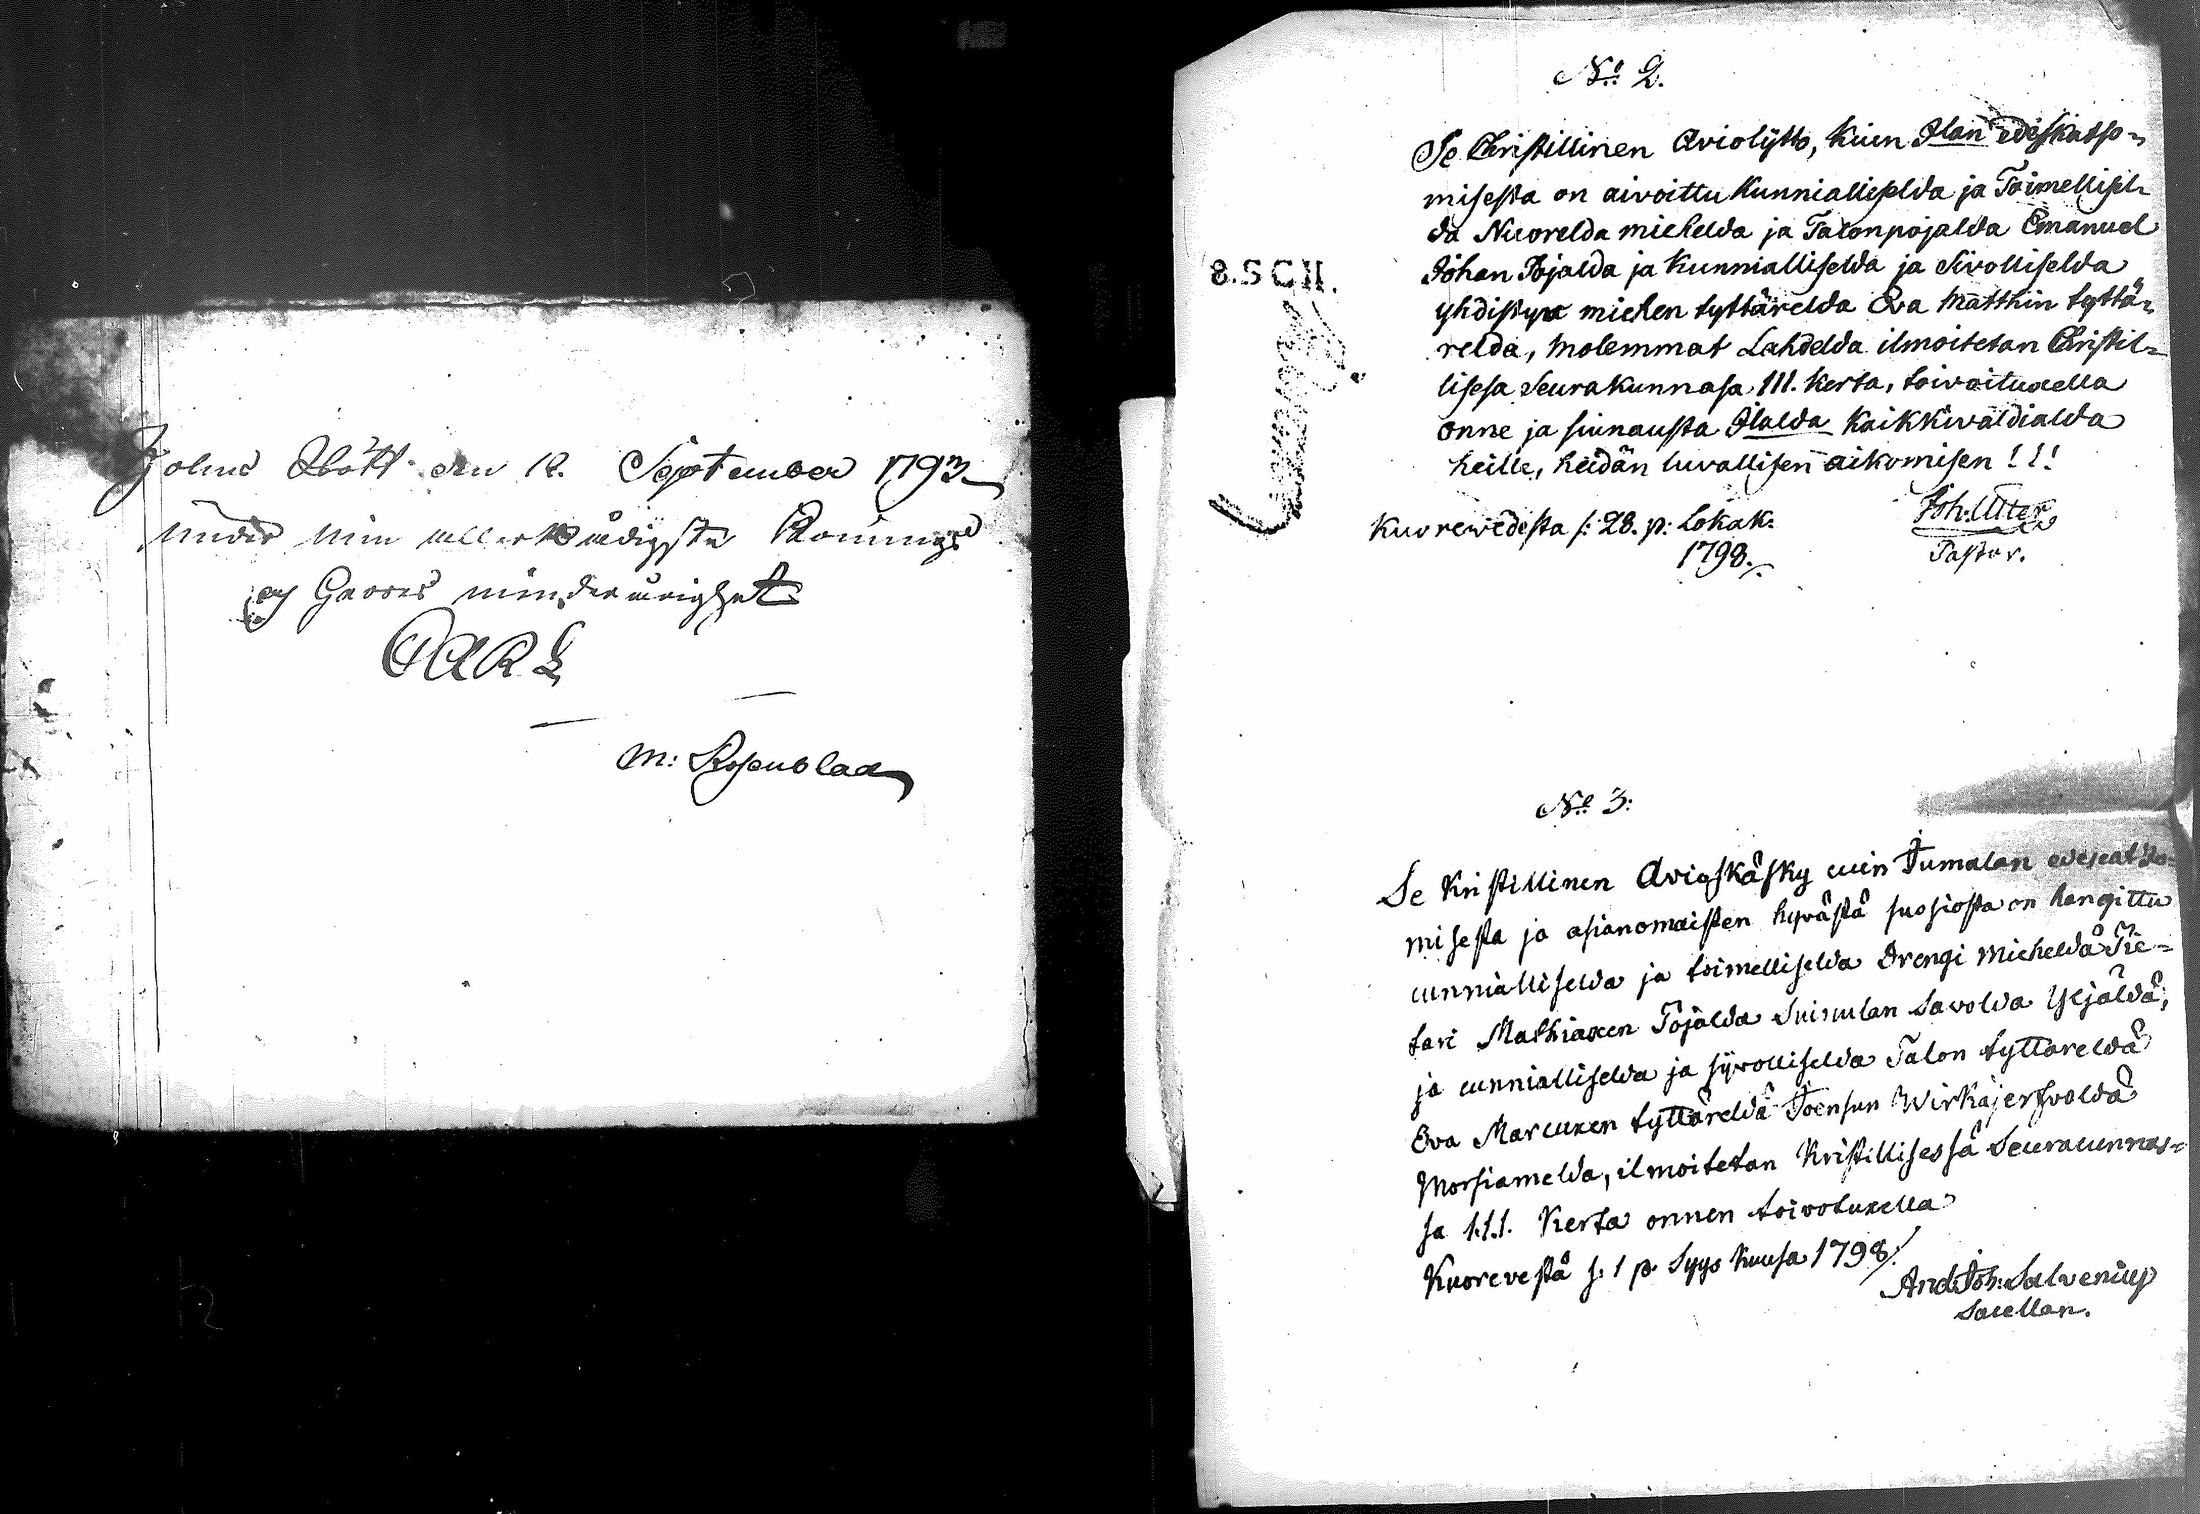 holms Slott den 12. September 1793
under min allernådigste Konungs
og Herres minderårighet
CARL
M: Rosenblad
No 2.
Se Christillinen Aviolijtto, kuin Jlan edeskatso-
misesta on aivoittu kunnialliselda ja Toimellisel-
da Nuorelda miehelda ja Talonpojalda Emanuel
Johan Pojalda ja kunnialliselda ja Sivolliselda
yhdistys miehen tyttärelda Eva Matthin tyttä-
relda, molemmat Lahdelda ilmoitetan Christil-
lisesa Seurakunnasa 111. kerta, toivoituxella
onne ja siunausta Jlalda kaikkivaldialda
heille, heidän luvallisen aikomisen!!!
Kuorevedesta s: 28. p: Lokak.
1798.
Joh: Uter
Pastor.
8.SCH.
No 3:
Se Kristillinen Avioskäsky cuin Jumalan edescatzo-
misesta ja asianomaisten hyvästä suosiosta on hangittu
cunnialliselda ja toimelliselda Drengi Micheldä Tie-
tari Mathiaxen Pojalda Suinulan Savolda Yljäldä,
ja cunnialliselda ja sijvolliselda Talon tyttäreldä
Eva Marcuxen tyttäreldä Joensun Wirkajersvoldä
Morsiamelda, ilmoitetan Kristillisessä Seuracunnas-
sa 1.1.1. Kerta onnen toivotuxella
Kuorevestä s: 1 p. Syys kuusa 1798.
And: Joh: Salvenius
Sacellan.